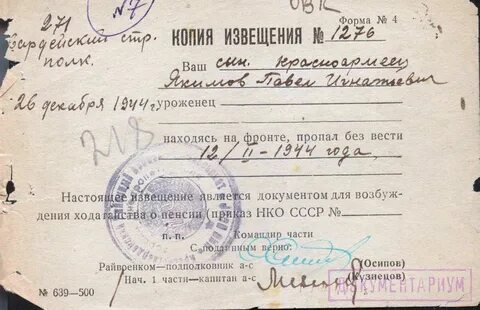 №7
ОВК
Форма № 4
271
гвардейский стр.
полк.
КОПИЯ ИЗВЕЩЕНИЯ № 1276
Ваш сын красноармеец
Якимов Павел Игнатьевич
26 декабря 1944 г.
уроженец
находясь на фронте, пропал без вести
218
12/II-1944 года
Настоящее извещение является документом для возбуж-
дения ходатайства о пенсии (приказ НКО СССР №
п. п.
Командир части
С подлинным верно:
(Осипов)
Райвоенком—подполковник а-с
(Кузнецов)
Нач. 1 части—капитан а-с
№ 639—500
ДОКУМЕНТАРИУМ